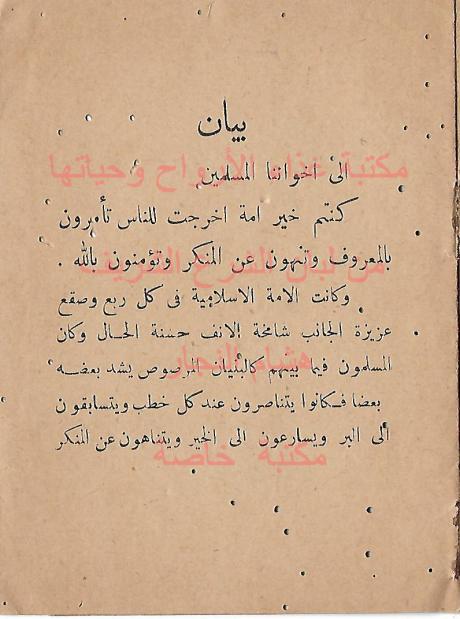 بيان
الى اخواننا المسلمين
كنتم خير امة اخرجت للناس تأمرون
بالمعروف وتنهون عن المنكر وتؤمنون بالله .
وكانت الامة الاسلامية فى كل ربع وصقع
عزيزة الجانب شامخة الانف حسنة الحال وكان
المسلمون فيما بينهم كالبنيان المرصوص يشد بعضه
بعضا فكانوا يتناصرون عند كل خطب ويتسابقون
الى البر ويسارعون الى الخير ويتناهون عن المنكر
مكتبة غذاء الأرواح وحياتها
من لبان الشرع الشريف
هشام النجار
مكتبة خاصة